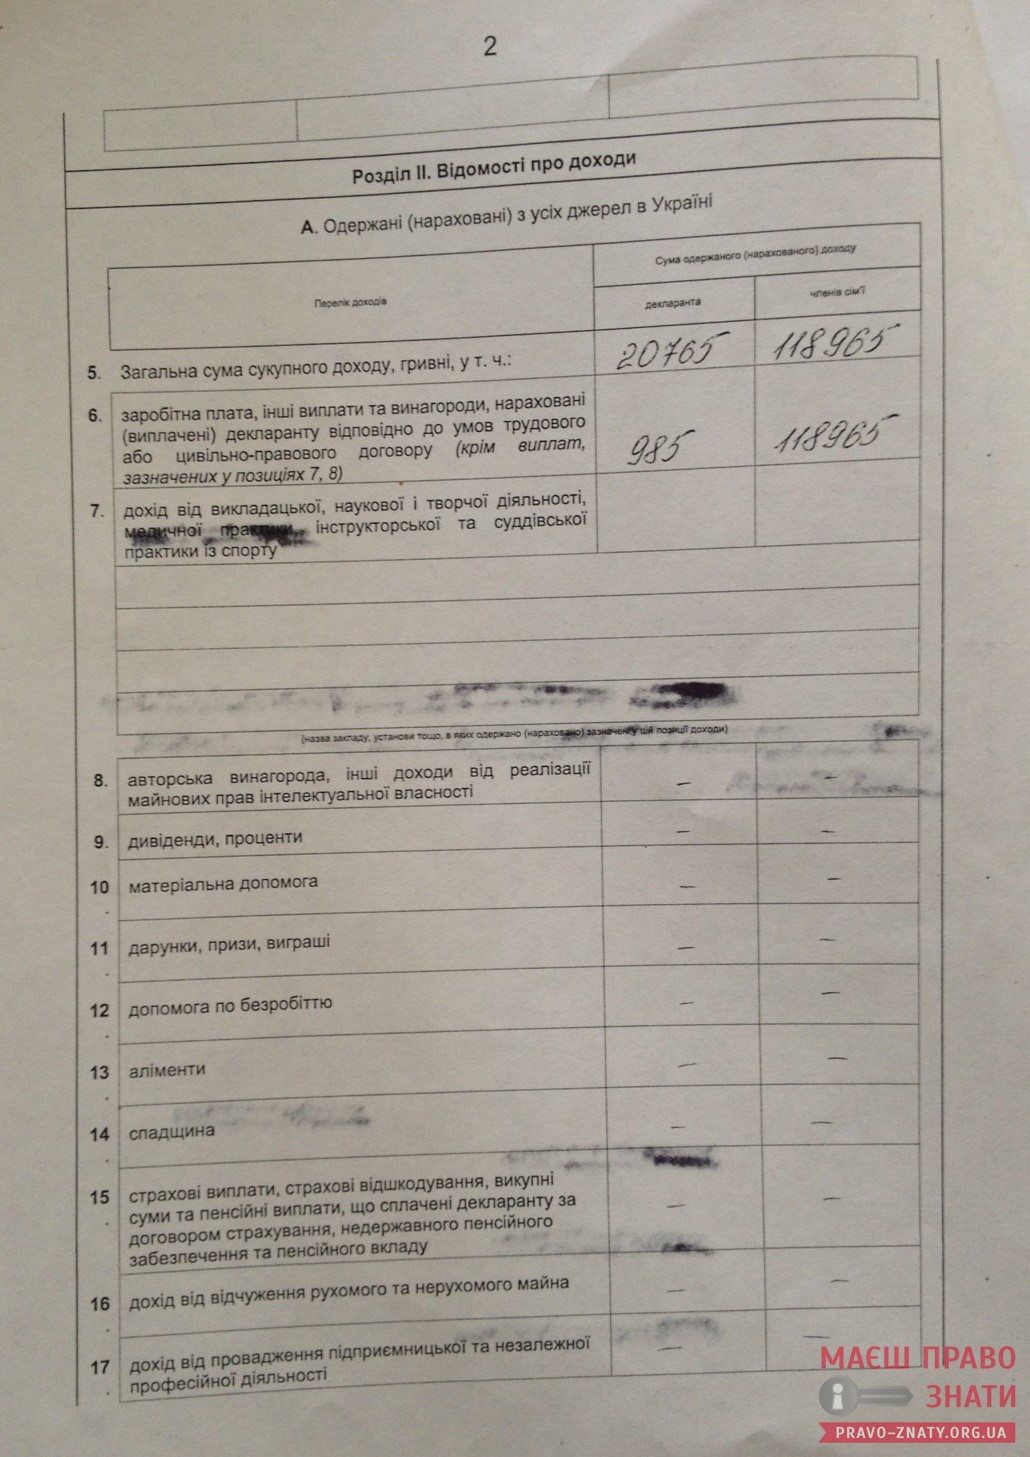 2
Розділ II. Відомості про доходи
А. Одержані (нараховані) з усіх джерел в Україні
Перелік доходів
Сума одержаного (нарахованого) доходу
декларанта
членів сім'ї
5. Загальна сума сукупного доходу, гривні, у т. ч.: 20765 118965
6. заробітна плата, інші виплати та винагороди, нараховані
(виплачені) декларанту відповідно до умов трудового
або цивільно-правового договору (крім виплат, 985 118965
зазначених у позиціях 7, 8)
7. дохід від викладацької, наукової і творчої діяльності,
медичної практики, інструкторської та суддівської
практики із спорту
(назва закладу, установи тощо, в яких одержано (нараховано) зазначені у цій позиції доходи)
8. авторська винагорода, інші доходи від реалізації – –
майнових прав інтелектуальної власності
9. дивіденди, проценти – –
10. матеріальна допомога – –
11. дарунки, призи, виграші – –
12. допомога по безробіттю – –
13. аліменти – –
14. спадщина – –
15. страхові виплати, страхові відшкодування, викупні
суми та пенсійні виплати, що сплачені декларанту за – –
договором страхування, недержавного пенсійного
забезпечення та пенсійного вкладу
16. дохід від відчуження рухомого та нерухомого майна – –
17. дохід від провадження підприємницької та незалежної – –
професійної діяльності
МАЄШ ПРАВО
ЗНАТИ
PRAVO-ZNATY.ORG.UA